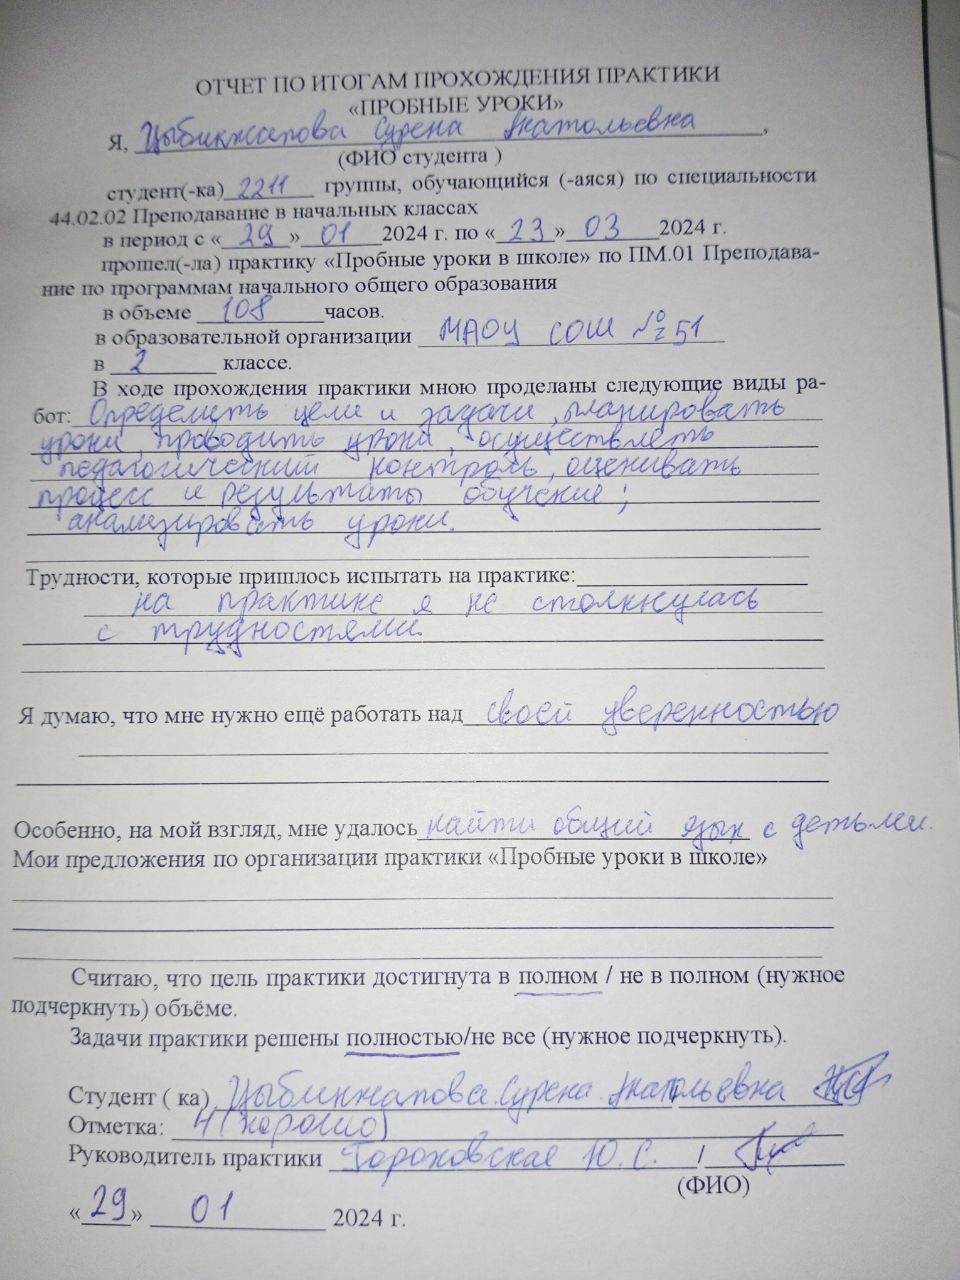 ОТЧЕТ ПО ИТОГАМ ПРОХОЖДЕНИЯ ПРАКТИКИ
«ПРОБНЫЕ УРОКИ»
Я, Цыбикжапова Сурена Анатольевна,
(ФИО студента )
студент(-ка) 2211 группы, обучающийся (-аяся) по специальности
44.02.02 Преподавание в начальных классах
в период с «29» 01 2024 г. по «23» 03 2024 г.
прошел(-ла) практику «Пробные уроки в школе» по ПМ.01 Преподава-
ние по программам начального общего образования
в объеме 108 часов.
в образовательной организации МАОУ СОШ №51
в 2 классе.
В ходе прохождения практики мною проделаны следующие виды ра-
бот: Определить цели и задачи, планировать
уроки, проводить уроки, осуществлять
педагогический контроль, оценивать
процесс и результаты обучения;
анализировать уроки.
Трудности, которые пришлось испытать на практике:
на практике я не столкнулась
с трудностями.
Я думаю, что мне нужно ещё работать над своей уверенностью
Особенно, на мой взгляд, мне удалось найти общий язык с детьми.
Мои предложения по организации практики «Пробные уроки в школе»
Считаю, что цель практики достигнута в полном / не в полном (нужное
подчеркнуть) объёме.
Задачи практики решены полностью/не все (нужное подчеркнуть).
Студент ( ка) Цыбикжапова Сурена Анатольевна /
Отметка: 4 (хорошо)
Руководитель практики Гороховская Ю. С. /
(ФИО)
«29» 01 2024 г.